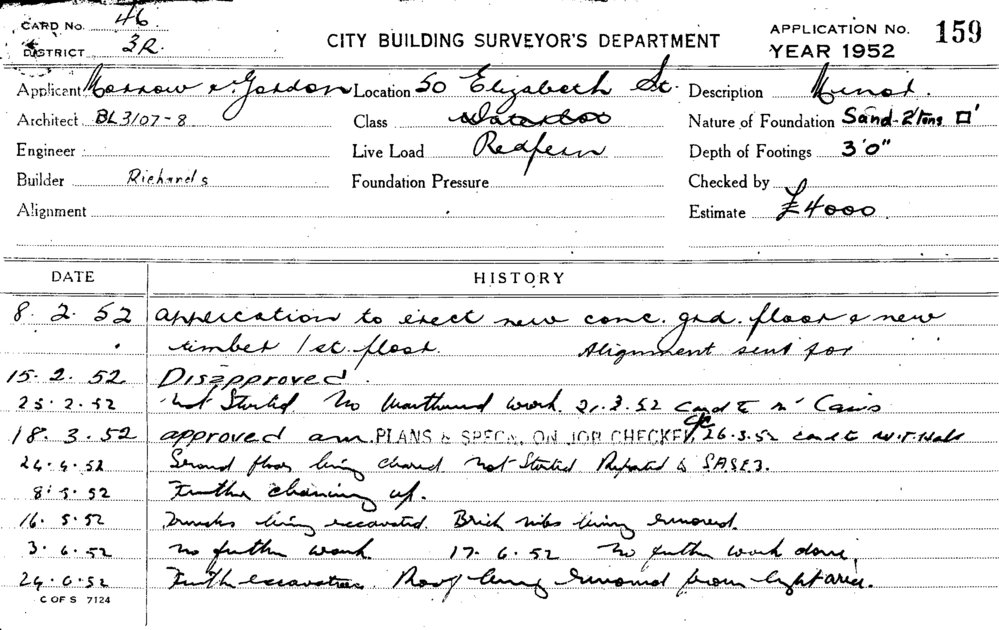 CARD No. 46.
DISTRICT 3R.
CITY BUILDING SURVEYOR'S DEPARTMENT
APPLICATION No. 159
YEAR 1952
Applicant Morrow & Gordon Location 50 Elizabeth St. Description Minor.
Architect BL3107-8 Class Waterloo Nature of Foundation Sand-2'tons □'
Engineer Live Load Redfern Depth of Footings 3'0"
Builder Richards Foundation Pressure Checked by
Alignment Estimate £4000
DATE HISTORY
8. 2. 52 application to erect new conc. grd. floor & new
timber 1st. floor. Alignment sent for
15. 2. 52. Disapproved.
25. 2. 52 Not Started. No work. 21. 3. 52 Card to
18. 3. 52 approved am. PLANS & SPECS. ON JOB CHECKED 26. 3. 52 card to
24. 4. 52 Second floor being cleared not Started Reported to
8. 5. 52 Further cleaning up.
16. 5. 52 being excavated. Brick nibs being removed.
3. 6. 52 No further work 17. 6. 52 No further work done.
24. 6. 52 Further excavation. Roof being removed from light area.
C OF S 7124